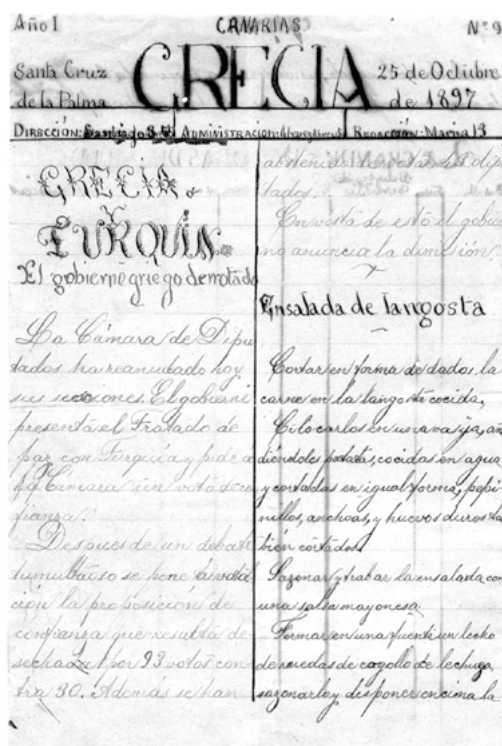 Año 1
CANARIAS
Nº 9
Santa Cruz
de la Palma
GRECIA
25 de Octubre
de 1897
DIRECCIÓN: Santiago ADMINISTRACION: REDACCIÓN: Marina 13
GRECIA
Y
TURQUIA
El gobierno griego derrotado
La Cámara de Dipu
tados ha reanudado hoy
sus sesiones. El gobierno
presenta el Tratado de
paz con Turquía y pide a
la Cámara un voto de con
fianza.
Despues de un debate
tumultuoso se pone a vota
ción la proposición de
confianza que resulta de
sechada por 93 votos con
tra 30. Además se han
abstenido de votar dipu
tados.
En vista de esto el gobier
no anuncia la dimisión.
Ensalada de langosta
Cortar en forma de dados la
carne en la langosta cocida,
en una vasija, aña
diéndoles patatas, cocidas en agua
y cortadas en igual forma, pepi
nillos, anchoas, y huevos duros ta
bién cortados.
Sazonar y trabar la ensalada con
una salsa mayonesa.
Formar en una fuente un lecho
de ruedas de cogollo de lechuga,
sazonarlo y disponer encima la